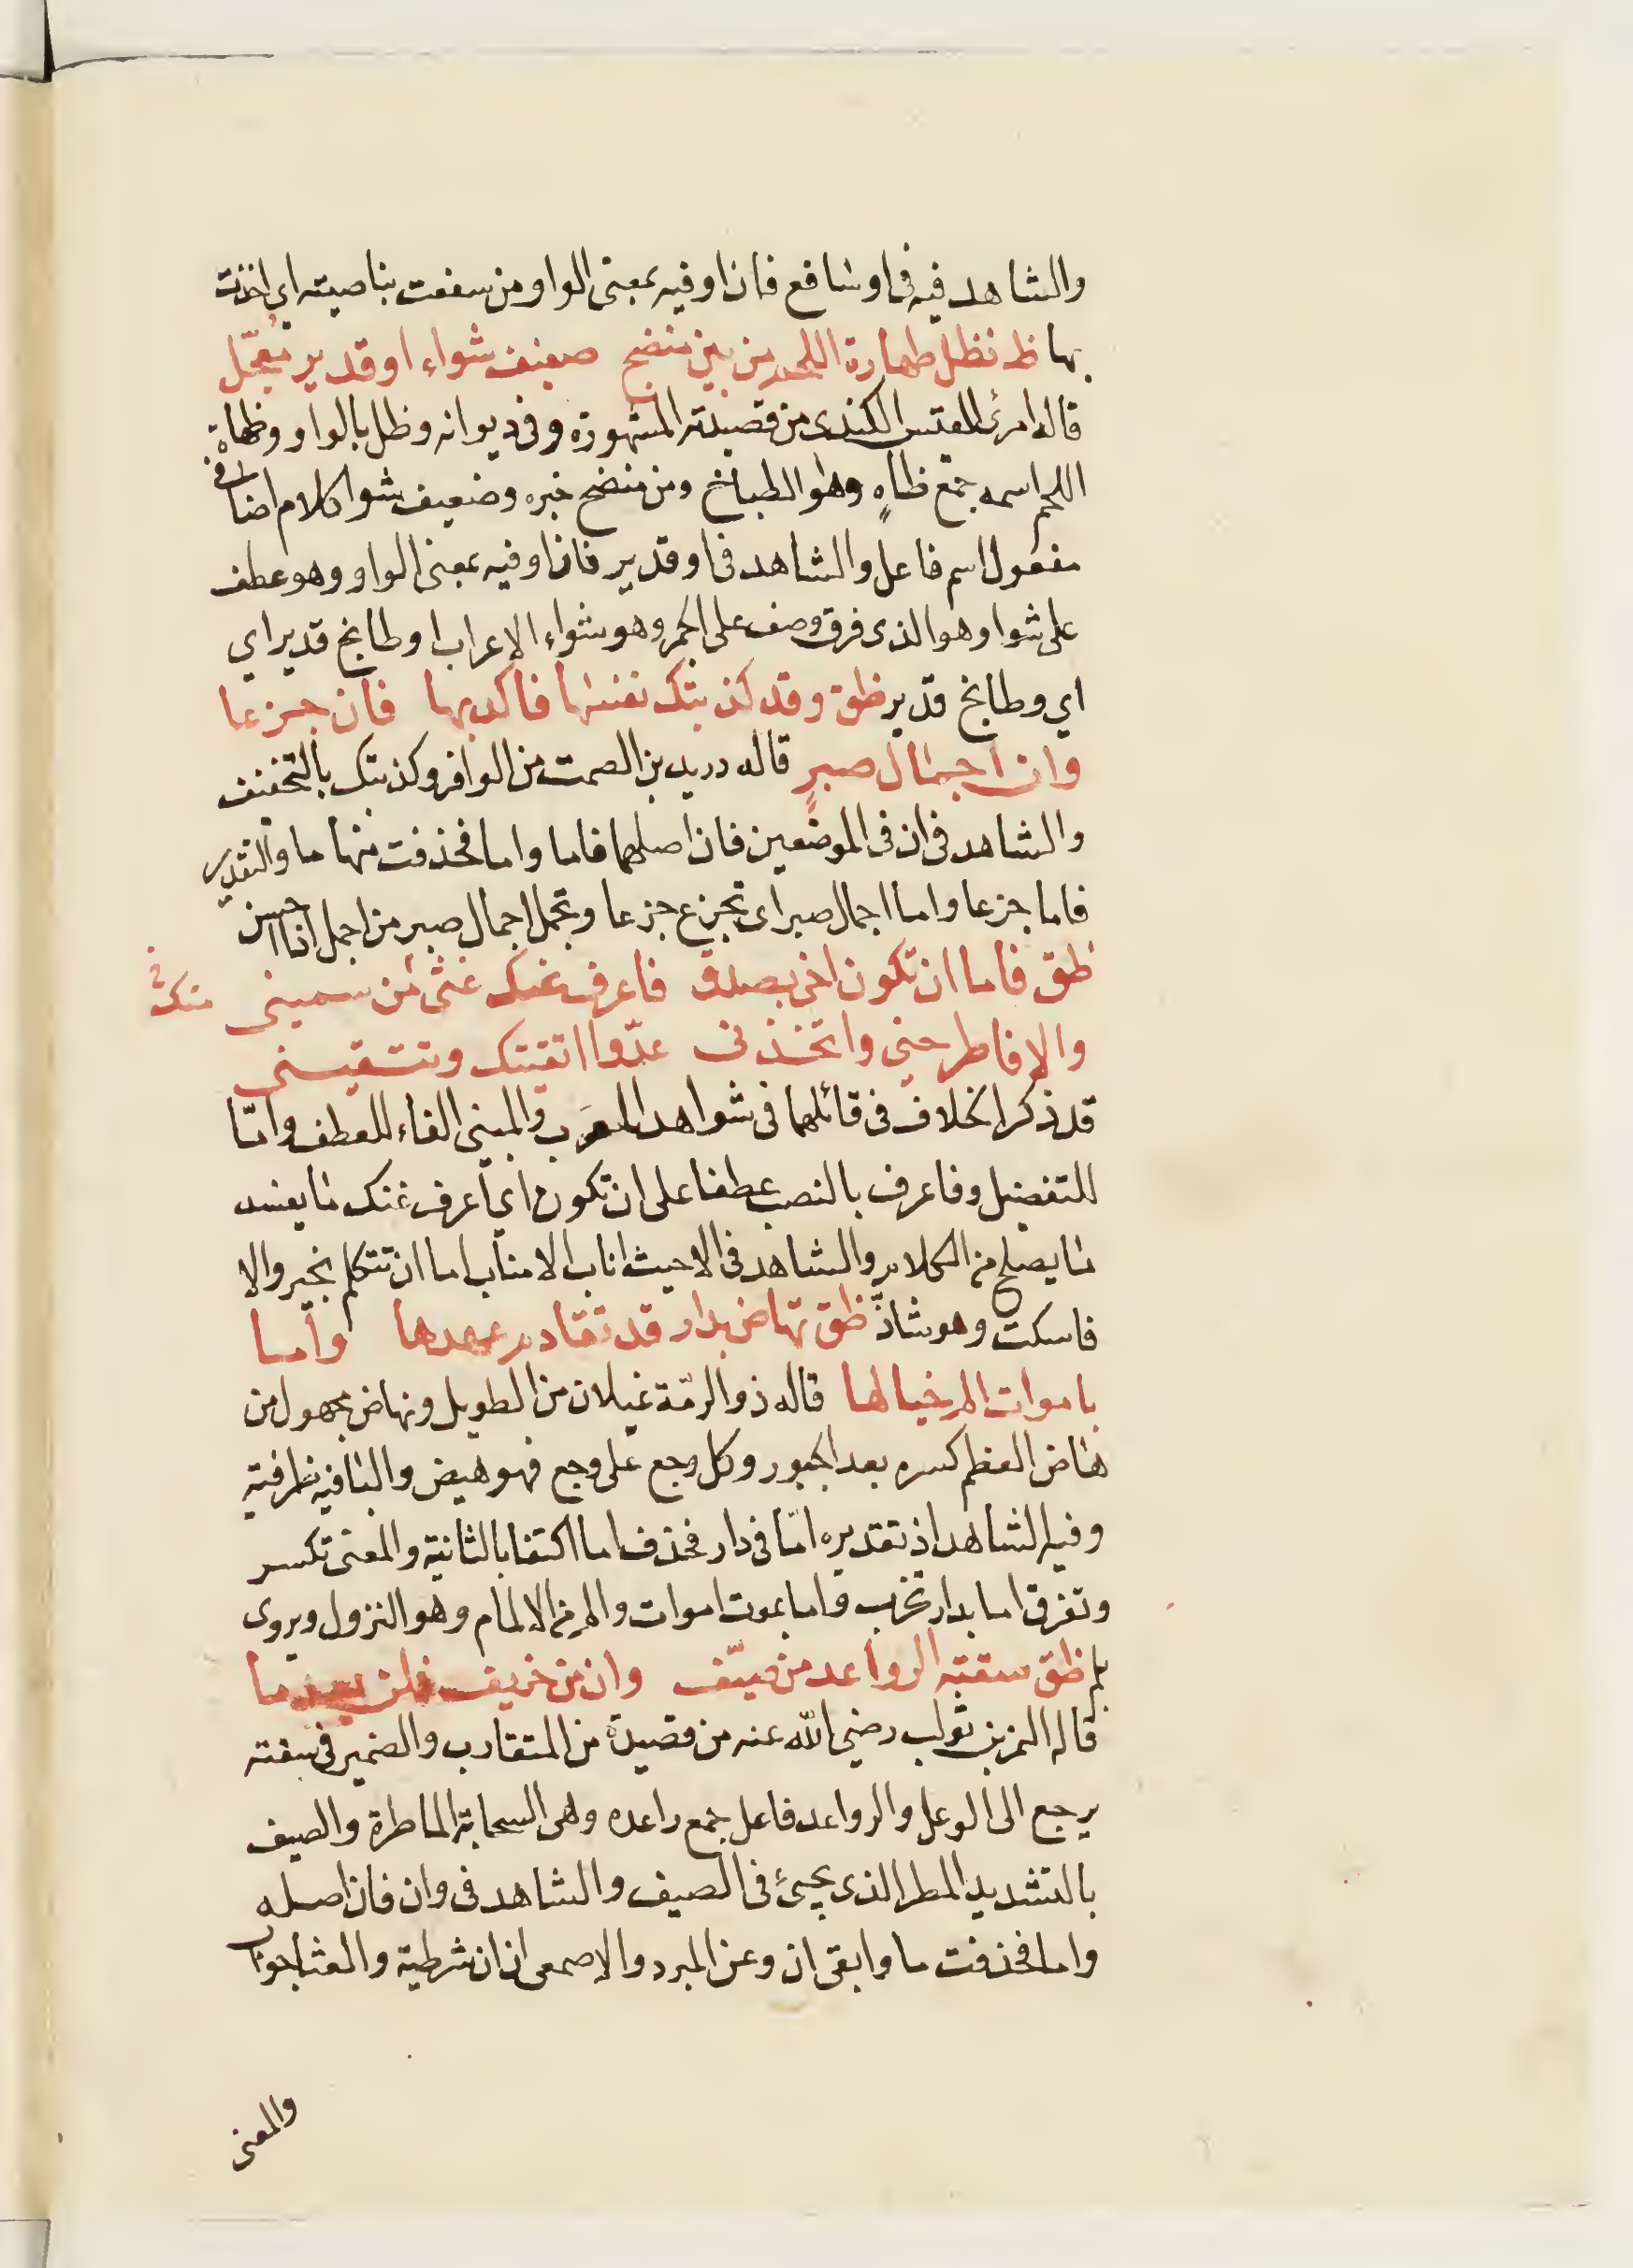 والشاهد فيه في او سافع فان او فيه بمعنى الواو من سفعت بناصيته اي اخذت
بها ظه فظل طهارة اللحم من بين منضج صفيف شواء او قدير معجّل
قاله امرئ القيس الكندى من قصيدته المشهورة وفى ديوانه وظل بالواو وطهاة
اللحم اسمه جمع طاهٍ وهو الطباخ ومن منضج خبره وضعيف شوا كلام اضافى
مفعول اسم فاعل والشاهد فى او قدير فان او فيه بمعنى الواو وهو عطف
على شوا وهو الذى فرق وصف على الجمر وهو شواء الاعراب او طابخ قدير اي
اي وطابخ قدير ظق وقد كذبتك نفسها فاكذبها فان جزعا
وان اجمال صبرٍ قاله دريد بن الصمت من الوافر وكذبتك بالتخفيف
والشاهد فى ان فى الموضعين فان اصلهما فاما واما فحذفت منها ما والتقدير
فاما جزعا واما اجمال صبر اى تجزع جزعا وتجمل اجمال صبر من اجمل اذا احسن
ظق فاما ان تكون اخى بصدق فاعرف عنك غثى من سمينى منك فى
والا فاطرحنى واتخذنى عدّوا اتقيتك وتتقينى
قد ذكر الخلاف فى قائلهما فى شواهد المعرب والمبنى الفاء للعطف وامّا
للتفضيل وفاعرف بالنصب عطفا على ان تكون اي اعرف عنك ما يفسد
ما يصلح من الكلام والشاهد فى الا حيث اناب الا مناب اما ان تتكلم بخير والا
فاسكت وهو شاذّ ظق تهاض بدار قد تقادم عهدها واما
باموات الم خيالها قاله ذو الرمّة غيلان من الطويل ونهاض مجهول من
هاض العظم كسره بعد الجبور وكل وجع على وجع فهو هيض والبا فيه ظرفية
وفيه الشاهد اذ تقديره امّا فى دار فحذف اما اكتفا بالثانية والمعنى تكسر
وتفرق اما بدار تخرب واما بموت اموات والم من الالمام وهو النزول ويروى
لم ظق سقته الرواعد من صيّف وان من خريف فلن يعدما
قاله النمر بن تولب رضي الله عنه من قصيدة من المتقارب والضمير فى سقته
يرجع الى الوعل والرواعد فاعل جمع راعده وهى السحابة الماطرة والصيف
بالتشديد المطر الذى يجئ فى الصيف والشاهد فى وان فان اصله
واما فحذفت ما وابقى ان وعن المبرد والاصمعى ان ان شرطية والفا جوا
والمعنى